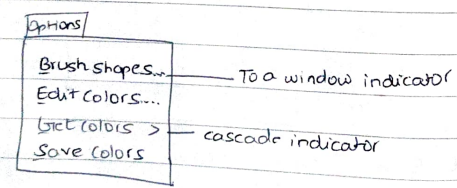 Options
Brush shapes... To a window indicator
Edit colors....
Get colors > cascade indicator
Save colors